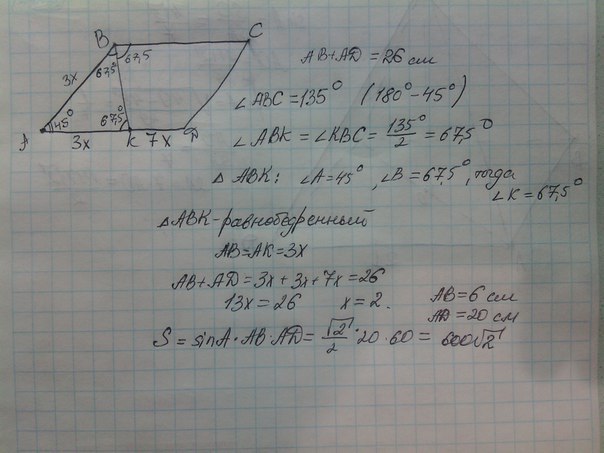 B C
67,5
67,5°
3x
A 45° 67,5°
3x K 7x D
AB+AD = 26 см
∠ABC = 135° (180°-45°)
∠ABK = ∠KBC = 135°/2 = 67,5°
△ ABK: ∠A=45°, ∠B=67,5°, тогда
∠K=67,5°
△ABK-равнобедренный
AB=AK=3x
AB+AD=3x+3x+7x=26
13x=26 x=2.
AB=6 см
AD=20 см
S = sinA·AB·AD= √2/2·20·60= 600√2